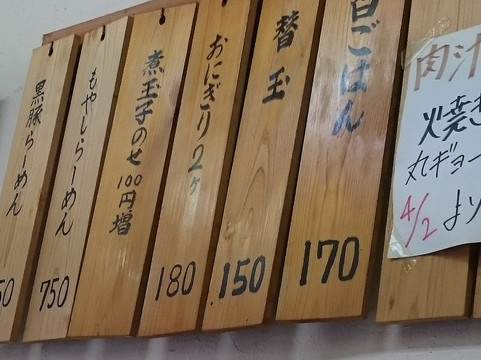 白ごはん
170
替玉
150
おにぎり2ヶ
180
煮玉子のせ
100円増
もやしらーめん
750
黒豚らーめん
50
肉汁
焼き
丸ギョー
4/2より